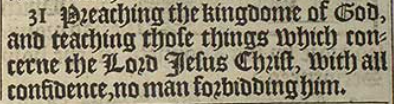 31 Preaching the kingdome of God,
and teaching those things which con-
cerne the Lord Jesus Christ, with all
confidence, no man forbidding him.